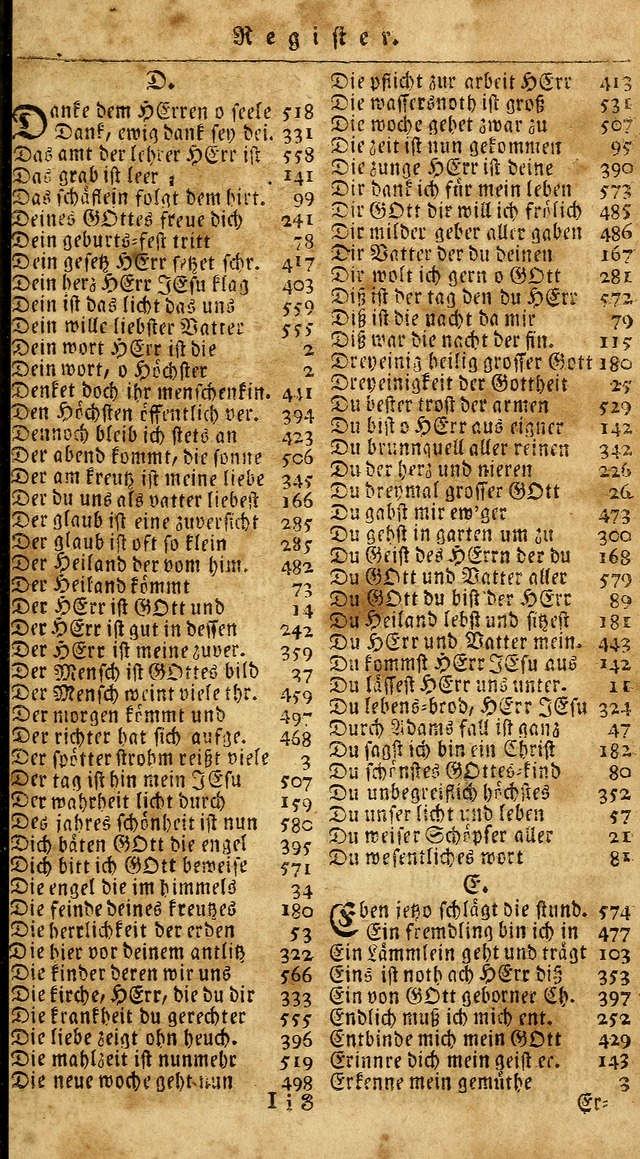 Register.
D.
Danke dem HErren o seele 518
Dank, ewig dank sey dei. 331
Das amt der lehrer HErr ist 558
Das grab ist leer ; 141
Das schäflein folgt dem hirt. 99
Deines GOttes freue dich 241
Dein geburts-fest tritt 78
Dein gesetz HErr setzet schr. 417
Dein herz HErr JEsu klag 403
Dein ist das licht das uns 559
Dein wille liebster Vatter 555
Dein wort HErr ist die 2
Dein wort, o Höchster 2
Denket doch ihr menschenkin. 441
Den Höchsten öffentlich ver. 394
Dennoch bleib ich stets an 423
Der abend kommt, die sonne 506
Der am kreutz ist meine liebe 345
Der du uns als vatter liebest 166
Der glaub ist eine zuversicht 285
Der glaub ist oft so klein 285
Der Heiland der vom him. 482
Der Heiland kömmt 73
Der HErr ist GOtt und 14
Der HErr ist gut in dessen 242
Der HErr ist meine zuver. 359
Der Mensch ist GOttes bild 37
Der Mensch weint viele thr. 459
Der morgen kömmt und 497
Der richter hat sich aufge. 468
Der spötter strohm reißt viele 3
Der tag ist hin mein JEsu 507
Der wahrheit licht durch 159
Des jahres schönheit ist nun 580
Dich bäten GOtt die engel 395
Dich bitt ich GOtt beweise 571
Die engel die im himmels 34
Die feinde deines kreutzes 180
Die herrlichkeit der erden 53
Die hier vor deinem antlitz 322
Die kinder deren wir uns 566
Die kirche, HErr, die du dir 333
Die krankheit du gerechter 555
Die liebe zeigt ohn heuch. 396
Die mahlzeit ist nunmehr 519
Die neue woche geht nun 498
Iiz
Die pflicht zur arbeit HErr 413
Die wassersnoth ist groß 531
Die woche gehet zwar zu 507
Die zeit ist nun gekommen 95
Die zunge HErr ist deine 390
Dir dank ich für mein leben 573
Dir GOtt dir will ich frölich 485
Dir milder geber aller gaben 486
Dir Vatter der du deinen 167
Dir wolt ich gern o GOtt 281
Diß ist der tag den du HErr 572
Diß ist die nacht da mir 79
Diß war die nacht der fin. 115
Dreyeinig heilig grosser Gott 180
Dreyeinigkeit der Gottheit 25
Du bester trost der armen 529
Du bist o HErr aus eigner 142
Du brunnquell aller reinen 342
Du der herz und nieren 226
Du dreymal grosser GOtt 26
Du gabst mir ew'ger 473
Du gehst in garten um zu 300
Du Geist des HErrn der du 168
Du GOtt und Vatter aller 579
Du GOtt du bist der HErr 89
Du Heiland lebst und sitzest 181
Du HErr und Vatter mein. 443
Du kommst HErr JEsu aus 142
Du lässest HErr uns unter. 11
Du lebens-brod, HErr JEsu 324
Durch Adams fall ist ganz 47
Du sagst ich bin ein Christ 182
Du schönstes GOttes-kind 80
Du unbegreiflich höchstes 352
Du unser licht und leben 57
Du weiser Schöpfer aller 21
Du wesentliches wort 81
E.
Eben jetzo schlägt die stund. 574
Ein fremdling bin ich in 477
Ein Lämmlein geht und trägt 103
Eins ist noth ach HErr diß 353
Ein von GOtt geborner Ch. 397
Endlich muß ich mich ent. 252
Entbinde mich mein GOtt 429
Erinnre dich mein geist er. 143
Erkenne mein gemüthe 3
Er-